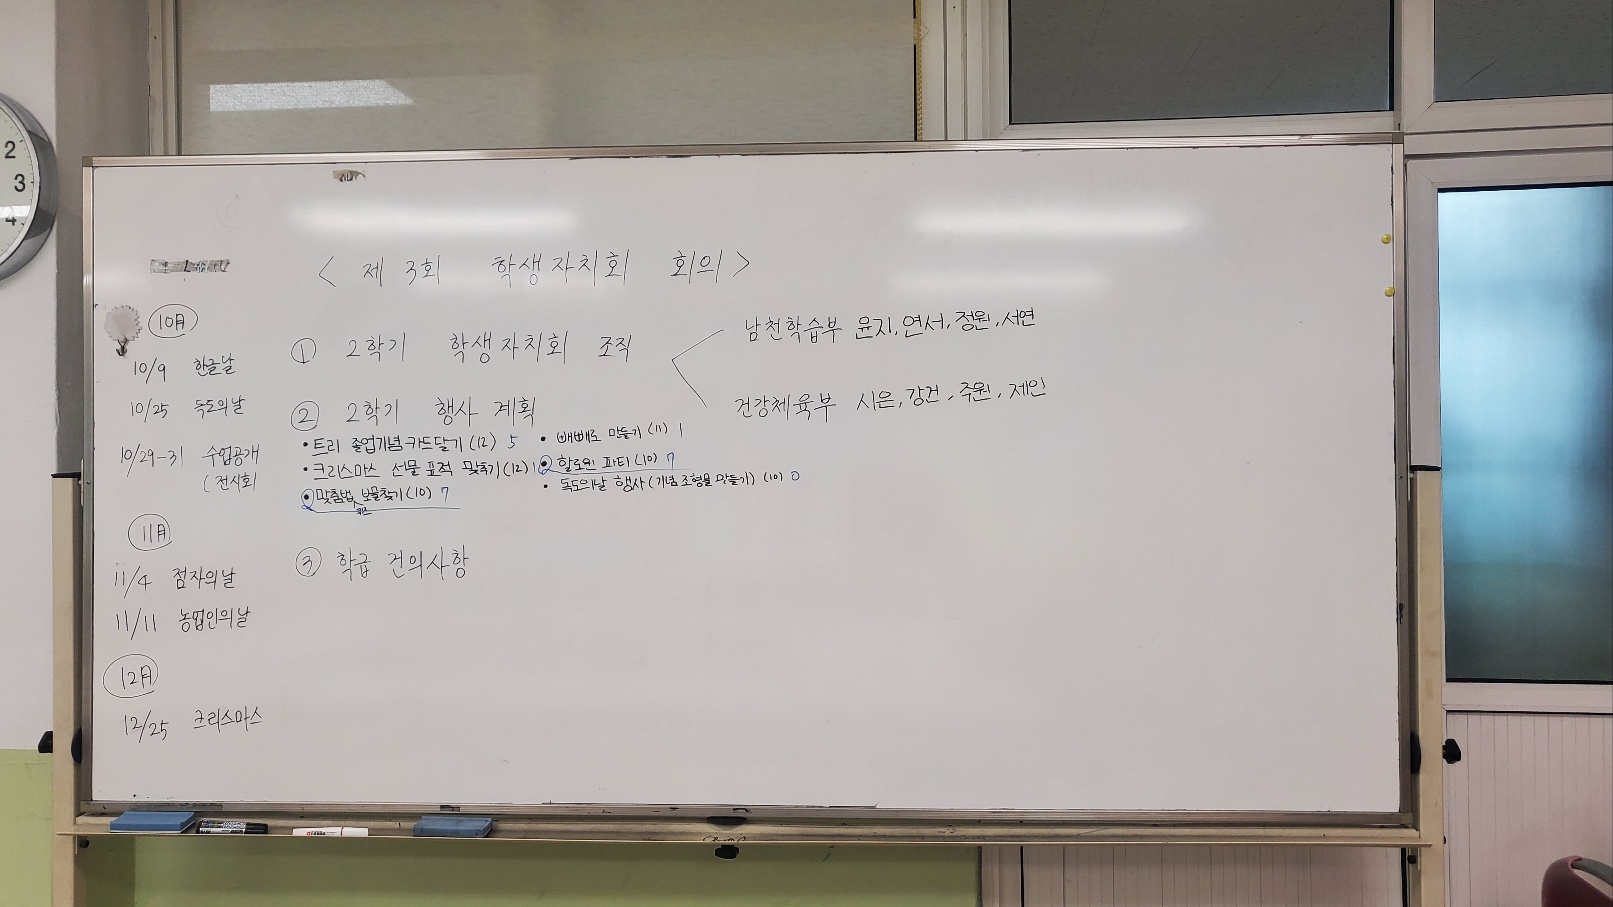 2
3
4
< 제 3회 학생자치회 회의 >
10月
10/9 한글날
10/25 독도의날
10/29-31 수업공개
( 전시회
11月
11/4 점자의날
11/11 농업인의날
12月
12/25 크리스마스
① 2학기 학생자치회 조직
남천학습부 윤지, 연서, 정원, 서연
건강체육부 시은, 강건, 주원, 제인
② 2학기 행사 계획
• 트리 졸업기념 카드달기 (12) 5
• 크리스마스 선물 표적 맞추기 (12) 1
• 맞춤법 퀴즈 보물찾기 (10) 7
• 빼빼로 만들기 (11) 1
• 할로윈 파티 (10) 7
• 독도의날 행사 (기념 조형물 만들기) (10) 0
③ 학급 건의사항